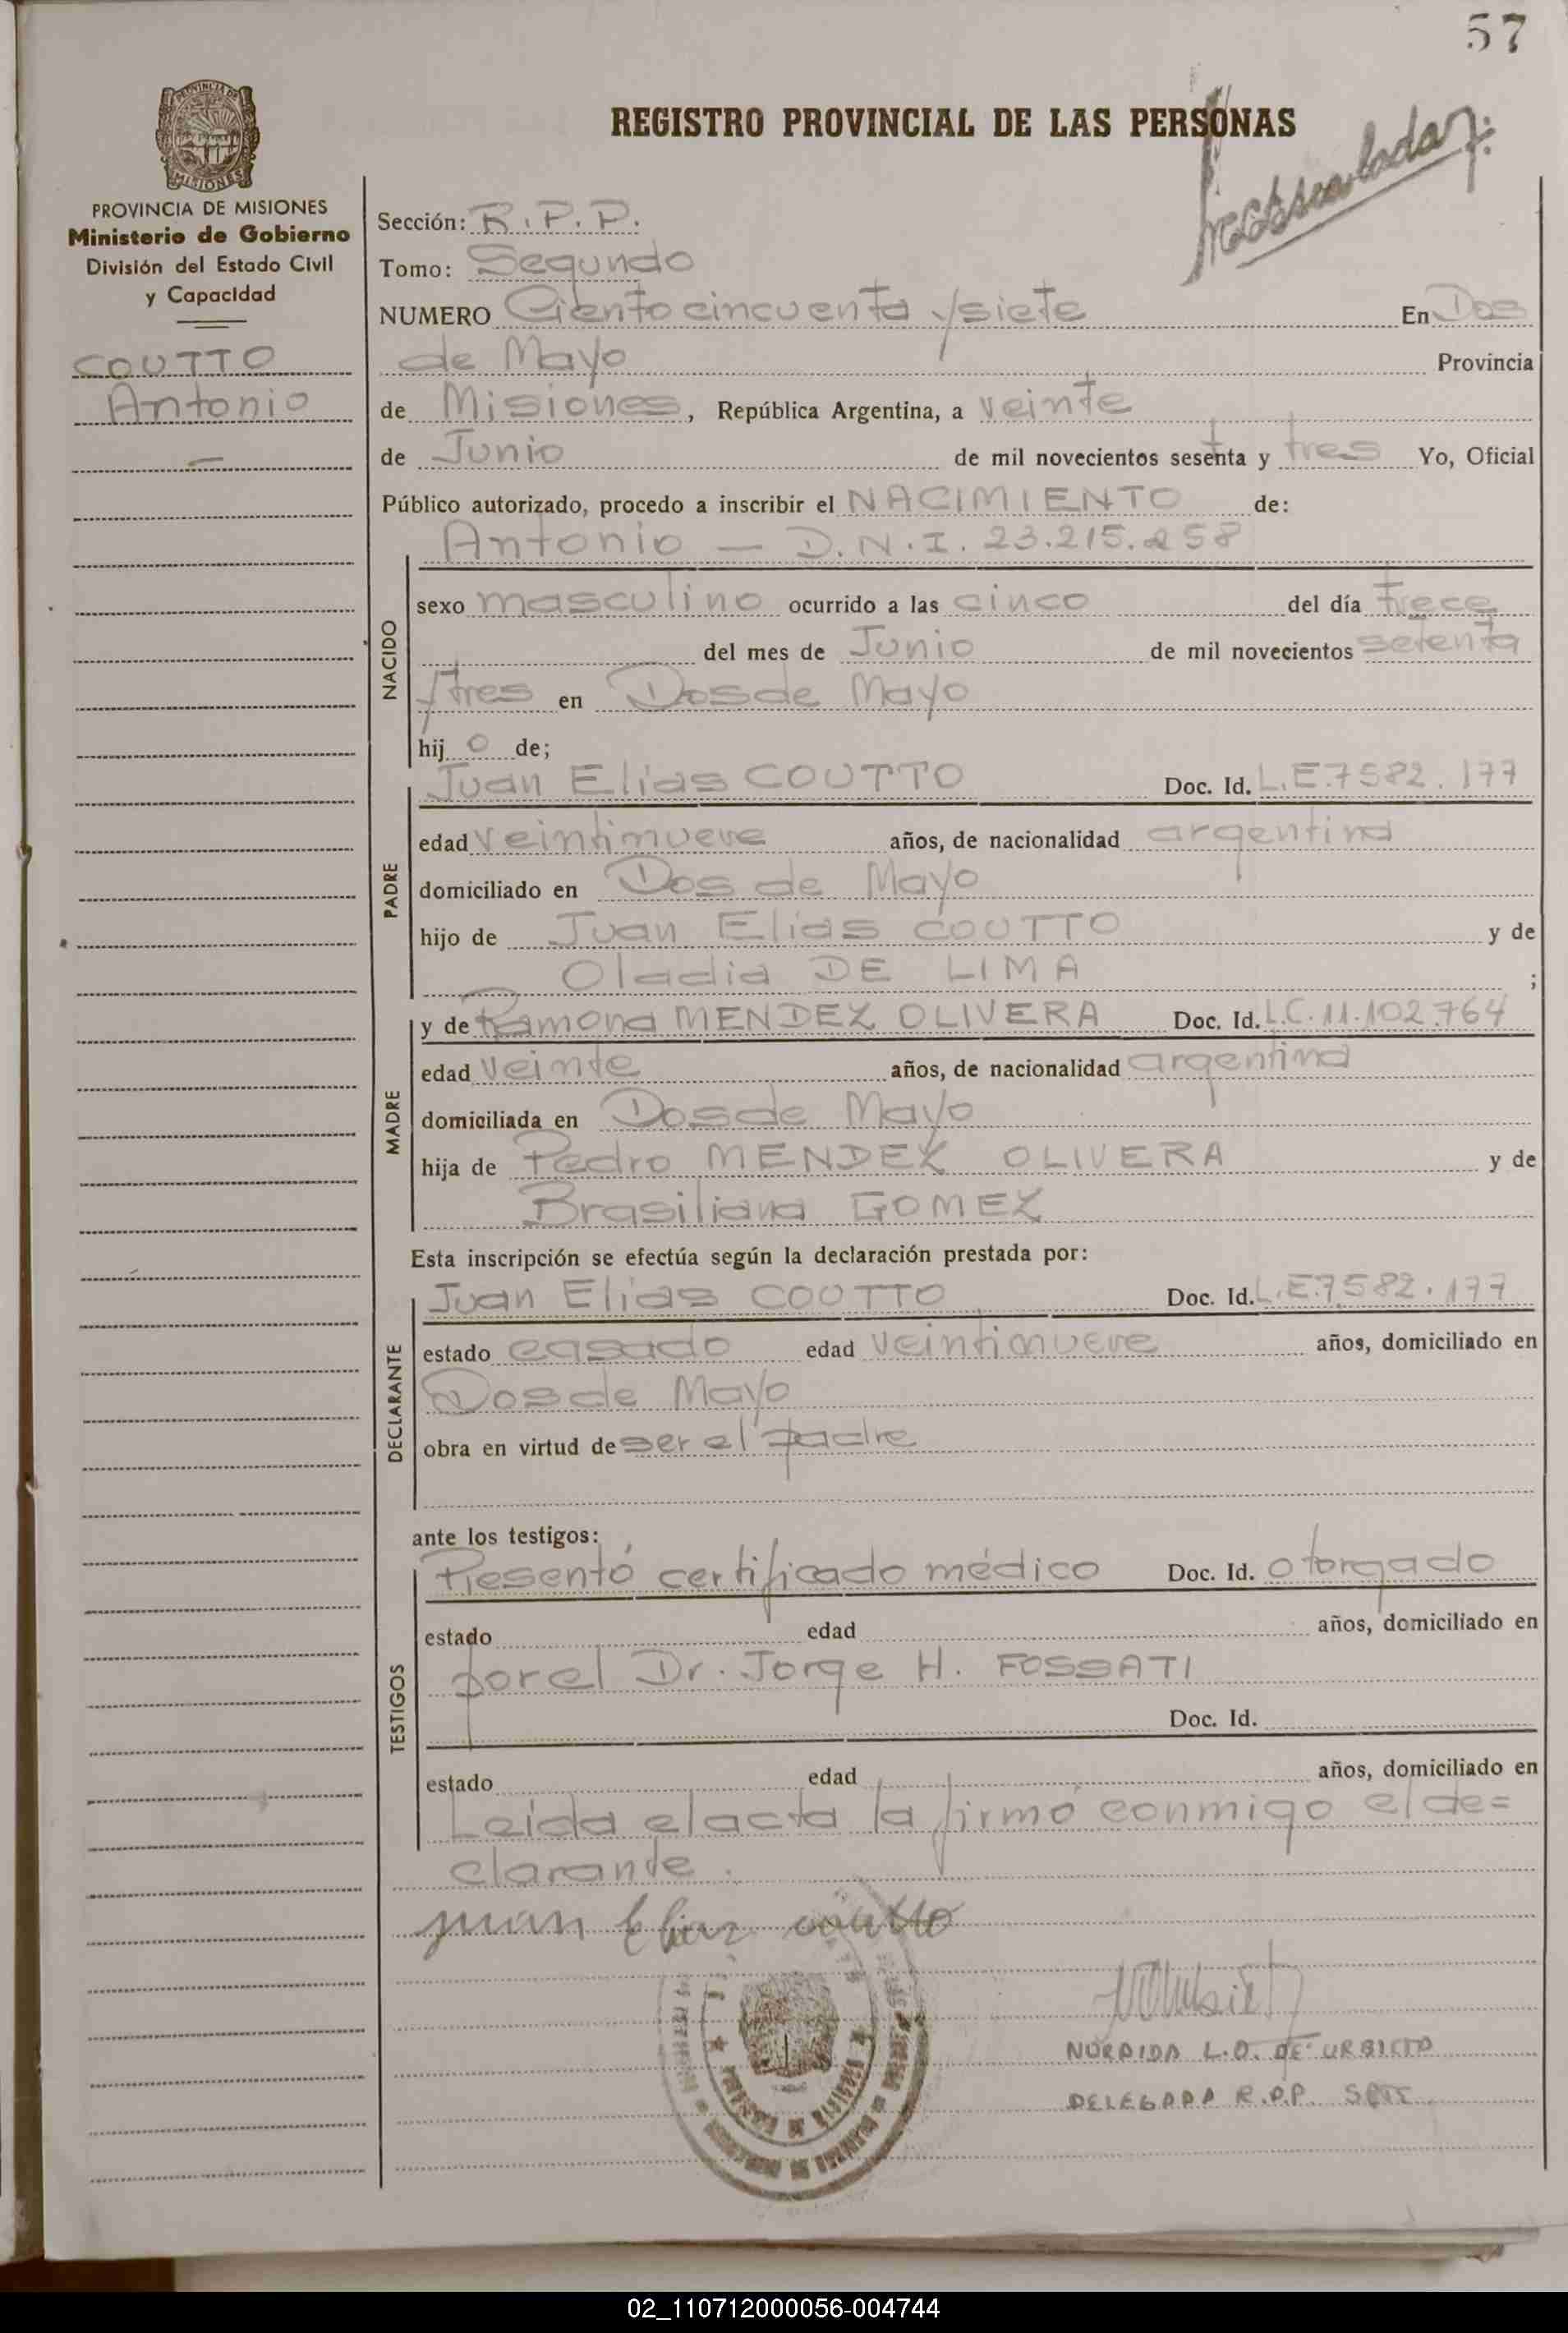 57
REGISTRO PROVINCIAL DE LAS PERSONAS
MISIONES
PROVINCIA DE MISIONES
Ministerio de Gobierno
División del Estado Civil
y Capacidad
COUTTO
Antonio
Sección: R.P.P.
Tomo: Segundo
NUMERO Ciento cincuenta y siete En Dos
de Mayo Provincia
de Misiones, República Argentina, a veinte
de Junio de mil novecientos sesenta y tres Yo, Oficial
Público autorizado, procedo a inscribir el NACIMIENTO de:
Antonio — D.N.I. 23.215.258
NACIDO
sexo masculino ocurrido a las cinco del día trece
del mes de Junio de mil novecientos setenta
y tres en Dos de Mayo
hij o de;
PADRE
Juan Elias COUTTO Doc. Id. L.E.7582.177
edad veintinueve años, de nacionalidad argentina
domiciliado en Dos de Mayo
hijo de Juan Elias COUTTO y de
Oladia DE LIMA ;
MADRE
y de Ramona MENDEZ OLIVERA Doc. Id. L.C.11.102.764
edad veinte años, de nacionalidad argentina
domiciliada en Dos de Mayo
hija de Pedro MENDEZ OLIVERA y de
Brasiliana GOMEZ
Esta inscripción se efectúa según la declaración prestada por:
DECLARANTE
Juan Elias COUTTO Doc. Id. L.E.7.582.177
estado casado edad veintinueve años, domiciliado en
Dos de Mayo
obra en virtud de ser el padre
ante los testigos:
TESTIGOS
Presentó certificado médico Doc. Id. otorgado
estado edad años, domiciliado en
por el Dr. Jorge H. FOSSATI
Doc. Id.
estado edad años, domiciliado en
Leida el acta la firmó conmigo el de=
clarante.
Juan Elias coutto
L.O. DE URBIETA
DELEGADA R.P.P.
02_110712000056-004744